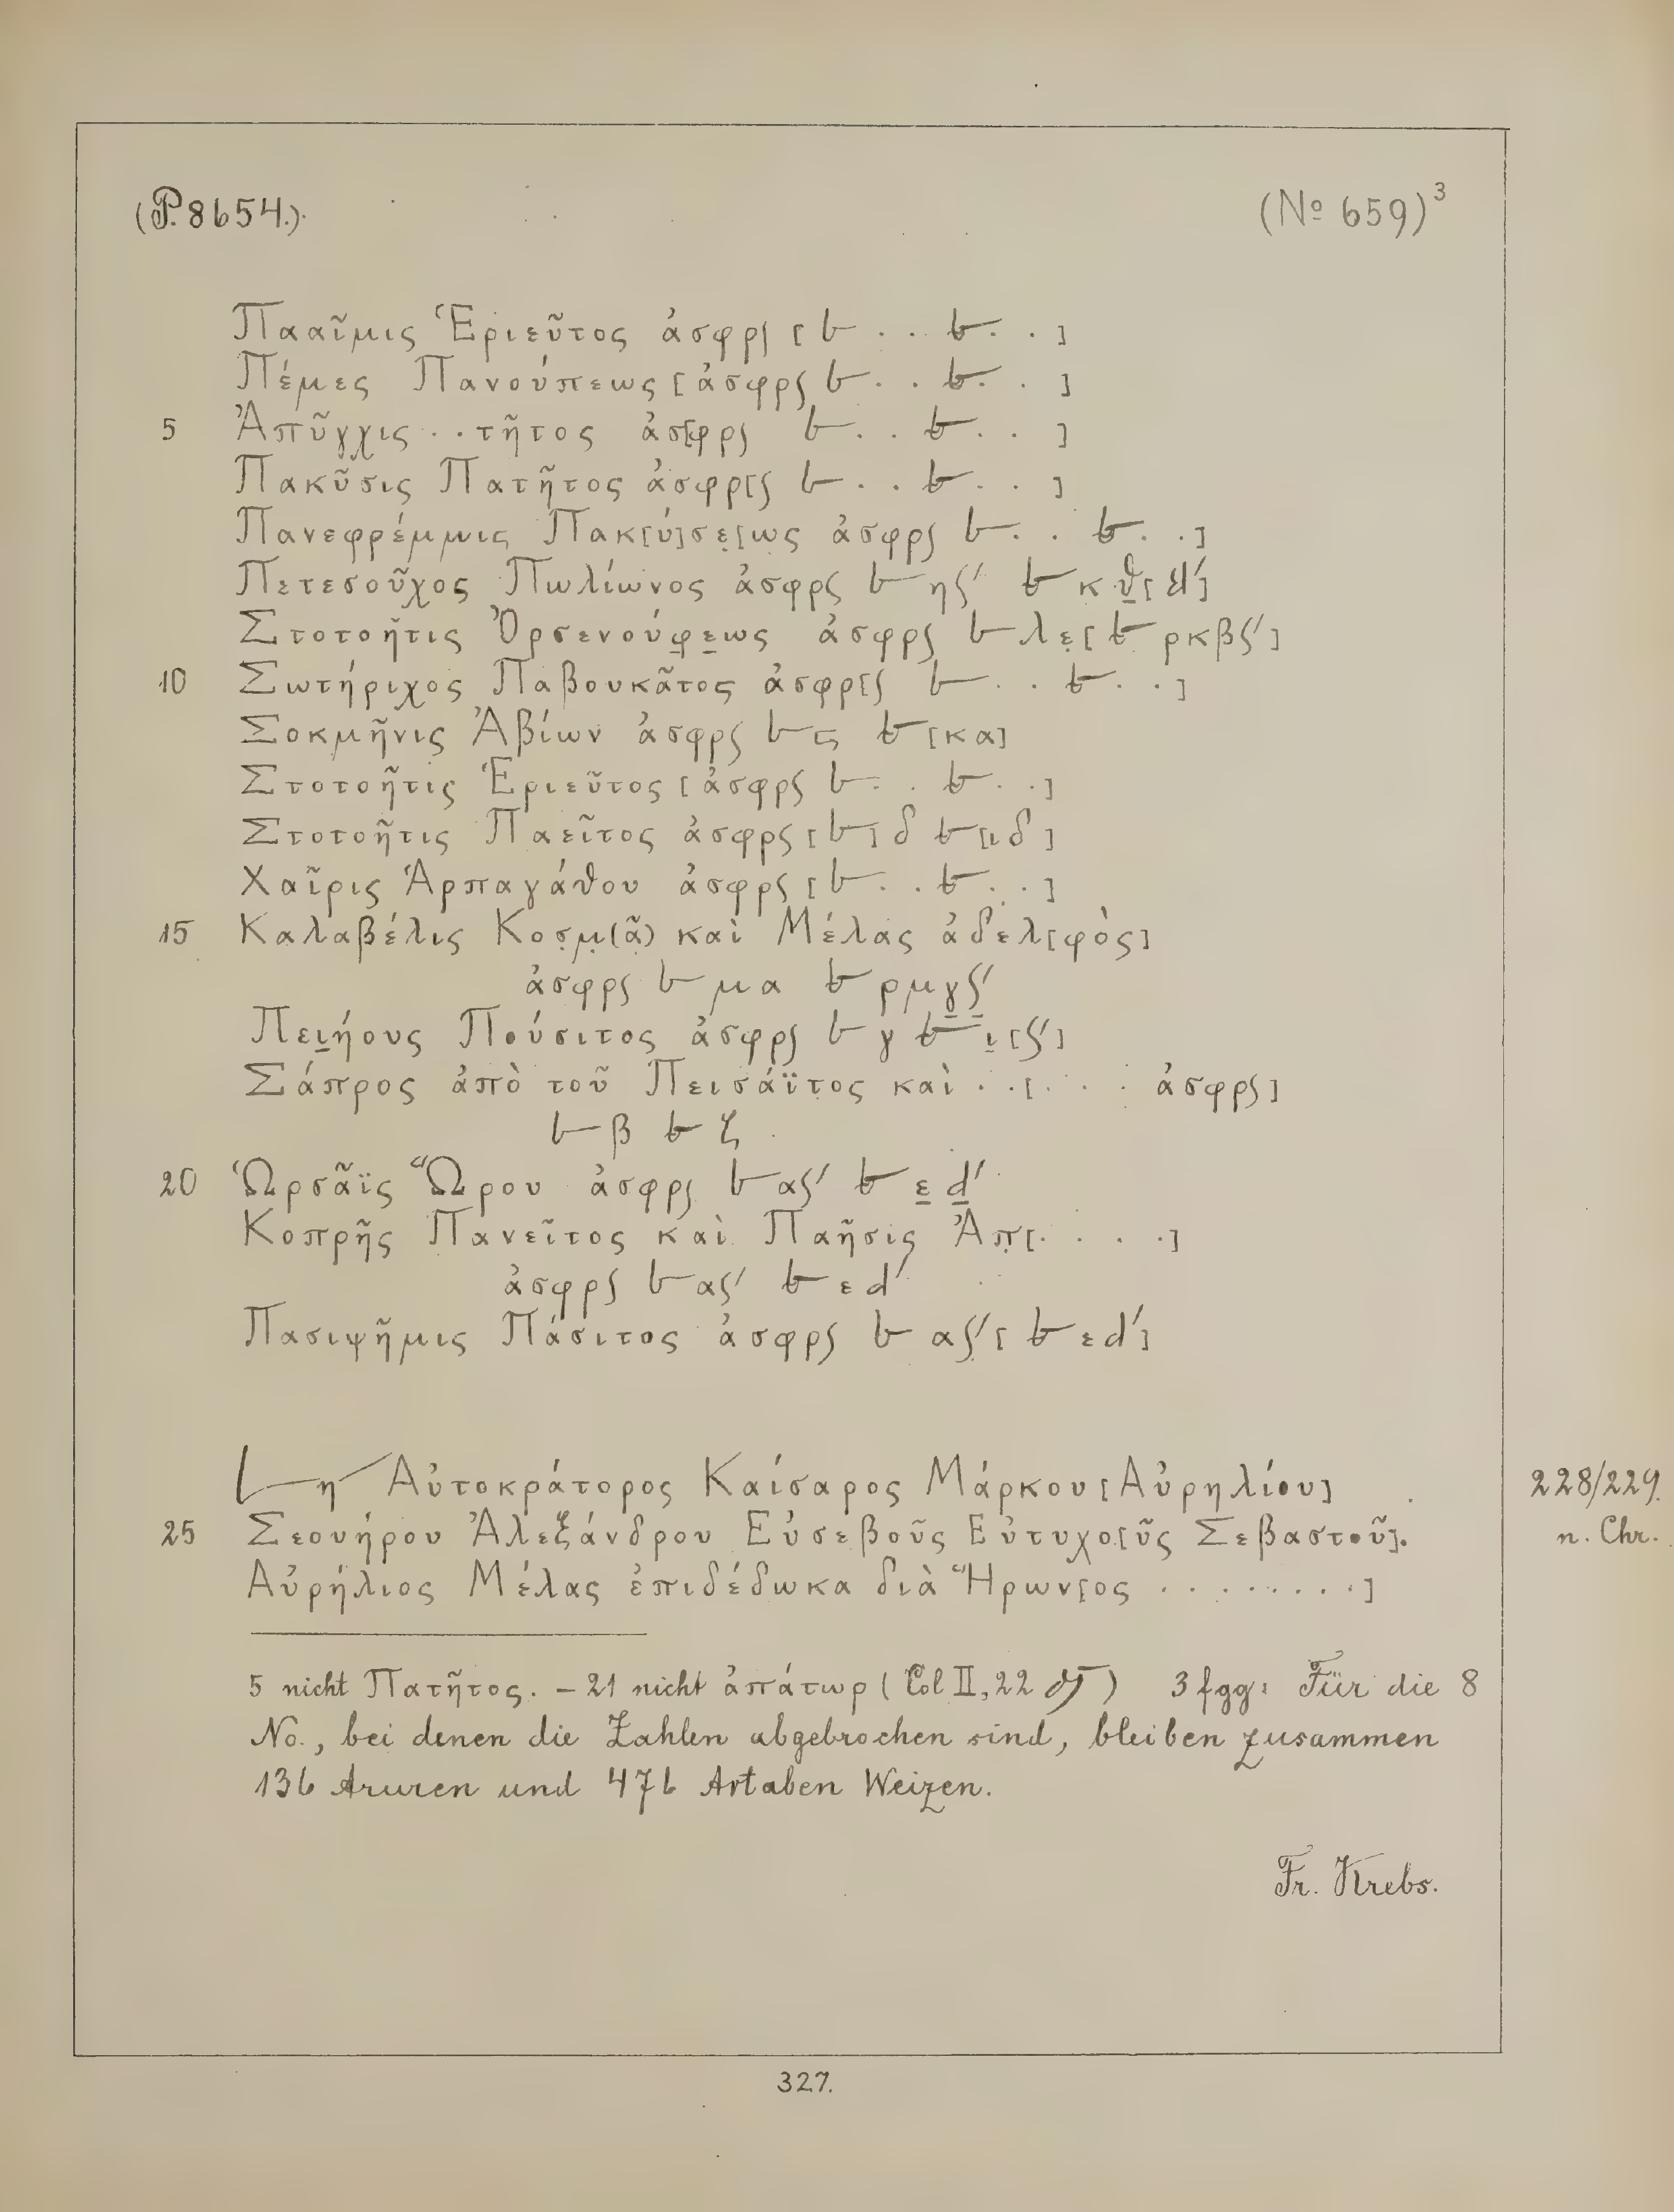 (P. 8654.) (Nº 659)³
Πααῖμις Ἑριεῦτος ἀσφρʃ [𐅵 . . 𐆂 . . ]
Πέμες Πανούπεως [ἀσφρʃ 𐅵 . . 𐆂 . . ]
5 Ἀπῦγχις . . τῆτος ἀσ[φρʃ 𐅵 . . 𐆂 . . ]
Πακῦσις Πατῆτος ἀσφρ[ʃ 𐅵 . . 𐆂 . . ]
Πανεφρέμμις Πακ[ύ]σε̣[ως ἀσφρʃ 𐅵 . . 𐆂 . . ]
Πετεσοῦχος Πωλίωνος ἀσφρʃ 𐅵 ηʃ′ 𐆂 κθ̣[d′]
Στοτοῆτις Ὀρσενούφ̣ε̣ως ἀσφρʃ 𐅵 λε̣[𐆂 ρκβʃ′]
10 Σωτήριχος Παβουκᾶτος ἀσφρ[ʃ 𐅵 . . 𐆂 . . ]
Σοκμῆνις Ἀβίων ἀσφρʃ 𐅵 ς 𐆂 [κα]
Στοτοῆτις Ἑριεῦτος [ἀσφρʃ 𐅵 . . 𐆂 . . ]
Στοτοῆτις Παεῖτος ἀσφρʃ [𐅵] δ 𐆂 [ιδ]
Χαῖρις Ἁρπαγάθου ἀσφρʃ [𐅵 . . 𐆂 . . ]
15 Καλαβέλις Κοσ̣μ̣(ᾶ) καὶ Μέλας ἀδελ[φὸς]
ἀσφρʃ 𐅵 μα 𐆂 ρμγ̣ʃ̣′
Πει̣ήους Πούσιτος ἀσφρʃ 𐅵 γ 𐆂 ι̣[ʃ′]
Σάπρος ἀπὸ τοῦ Πεισάϊτος καὶ . . [ . . . ἀσφρʃ]
𐅵 β 𐆂 ζ
20 Ὡρσᾶϊς Ὥρου ἀσφρʃ 𐅵 αʃ′ 𐆂 ε̣ ḍ′
Κοπρῆς Πανεῖτος καὶ Παῆσις Ἀπ̣[ . . . . ]
ἀσφρʃ 𐅵 αʃ′ 𐆂 ε d′
Πασιψῆμις Πάσιτος ἀσφρʃ 𐅵 αʃ′ [𐆂 ε d′]
L η Αὐτοκράτορος Καίσαρος Μάρκου [Αὐρηλίου] 228/229
25 Σεουήρου Ἀλεξάνδρου Εὐσεβοῦς Εὐτυχο[ῦς Σεβαστοῦ]. n. Chr.
Αὐρήλιος Μέλας ἐπιδέδωκα διὰ Ἥρων[ος . . . . . . . . ]
5 nicht Πατῆτος. – 21 nicht ἀπάτωρ (Col II, 22 ) 3 fgg: Für die 8
No., bei denen die Zahlen abgebrochen sind, bleiben zusammen
136 Aruren und 476 Artaben Weizen.
Fr. Krebs.
327.